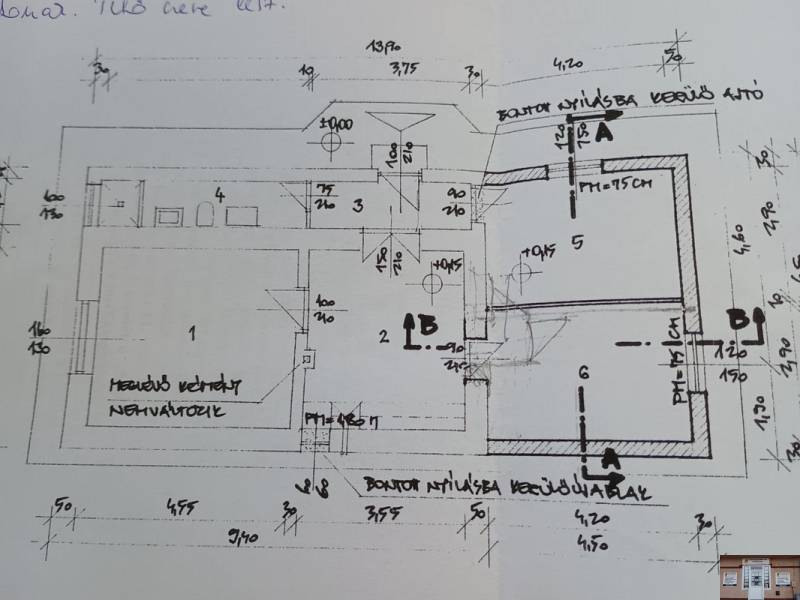 13,90
30
10
3,75
30
4,20
30
BONTOTT NYÍLÁSBA KERÜLŐ AJTÓ
±0,00
A
120
150
100
210
4
75
210
3
90
210
PM=75CM
5
+0,15
+0,15
150
210
30
2,90
4,60
10
160
130
1
100
210
2
B
90
210
B
PM=75CM
120
150
2,90
6
MEGLÉVŐ KÉMÉNY
NEM VÁLTOZIK
1,90
A
30
BONTOTT NYÍLÁSBA KERÜLŐ ÚJ ABLAK
50
4,55
30
3,55
50
4,20
30
9,40
4,50